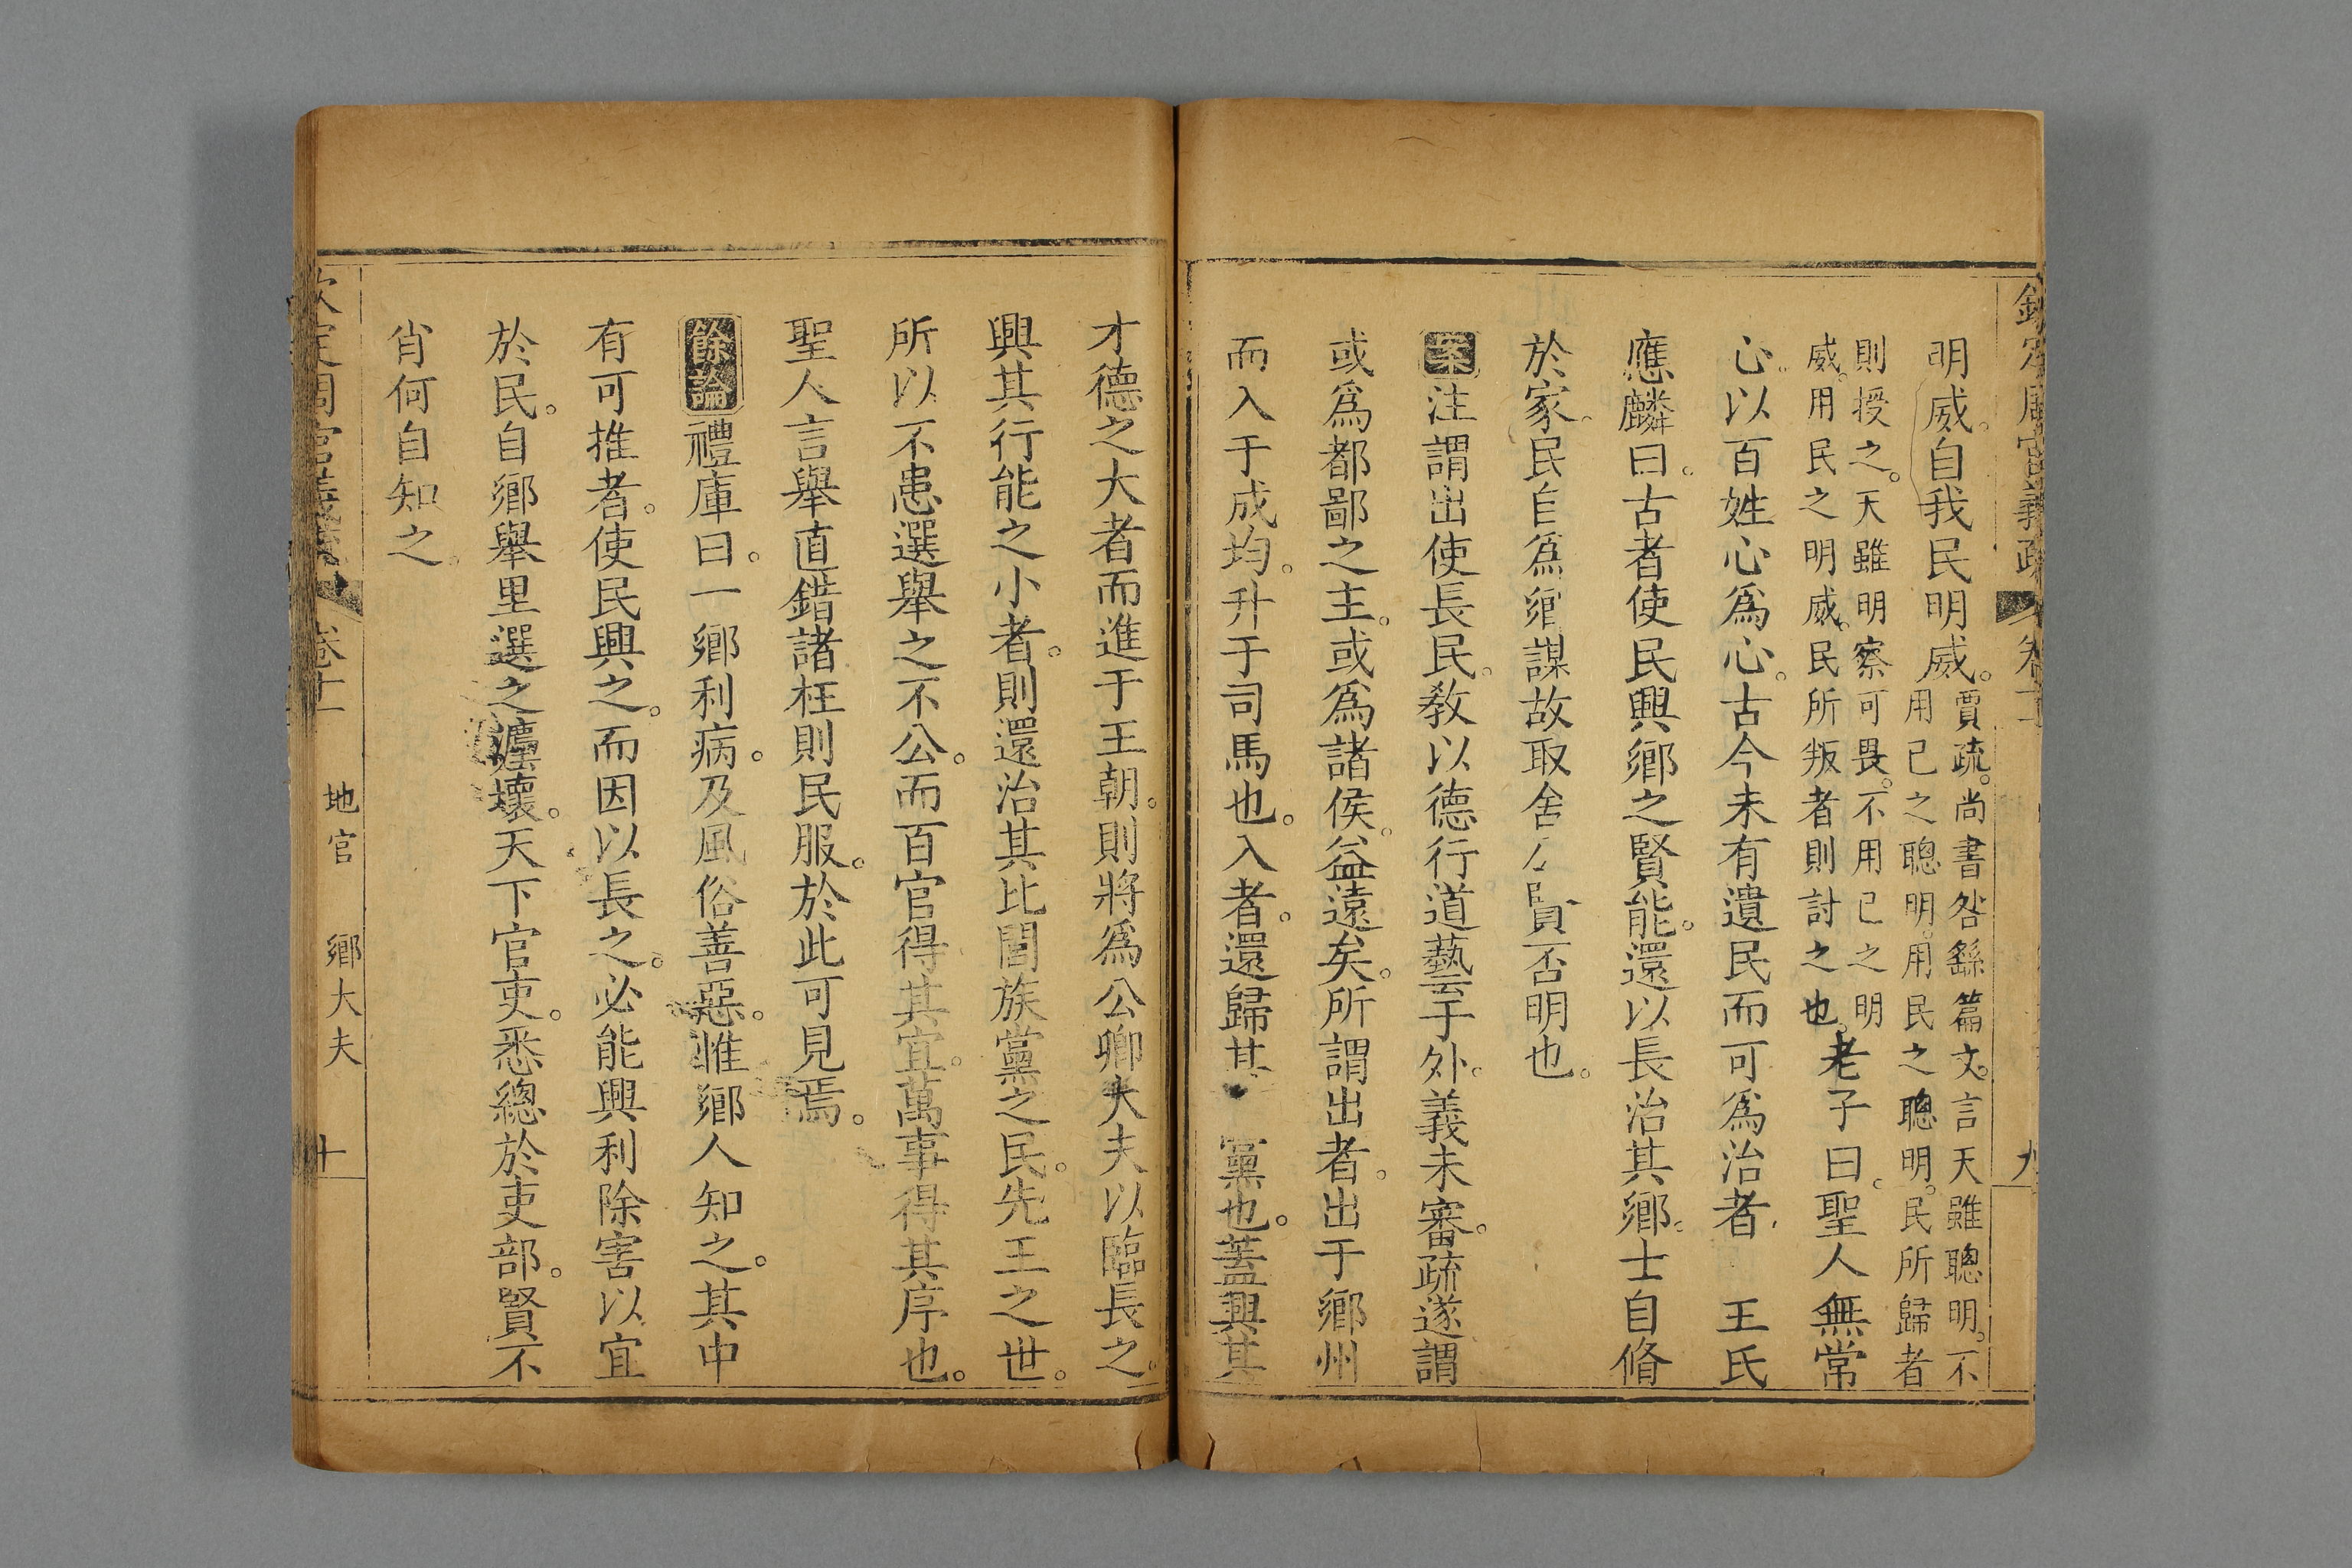 明威。自我民明威。賈疏。尚書咎繇篇文。言天雖聰明。不
用已之聰明。用民之聰明。民所歸者
則授之。天雖明察可畏。不用已之明
威。用民之明威。民所叛者則討之也。老子曰。聖人無常
心。以百姓心為心。古今未有遺民而可為治者 王氏
應麟曰。古者使民興鄉之賢能。還以長治其鄉。士自脩
於家。民自為鄉謀故取舍 賢否明也。
案注謂出使長民。教以德行道藝于外。義未審。疏遂謂
或為都鄙之主。或為諸侯。益遠矣。所謂出者。出于鄉州
而入于成均。升于司馬也。入者。還歸其 黨也。蓋興其
才德之大者而進于王朝。則將為公卿大夫以臨長之。
興其行能之小者。則還治其比閭族黨之民。先王之世。
所以不患選舉之不公。而百官得其宜。萬事得其序也。
聖人言舉直錯諸枉則民服。於此可見焉。
餘論禮庫曰。一鄉利病。及風俗善惡。惟鄉人知之。其中
有可推者。使民興之。而因以長之。必能興利除害以宜
於民。自鄉舉里選之 壞。天下官吏。悉總於吏部。賢不
肖何自知之。
地官 鄉大夫 十